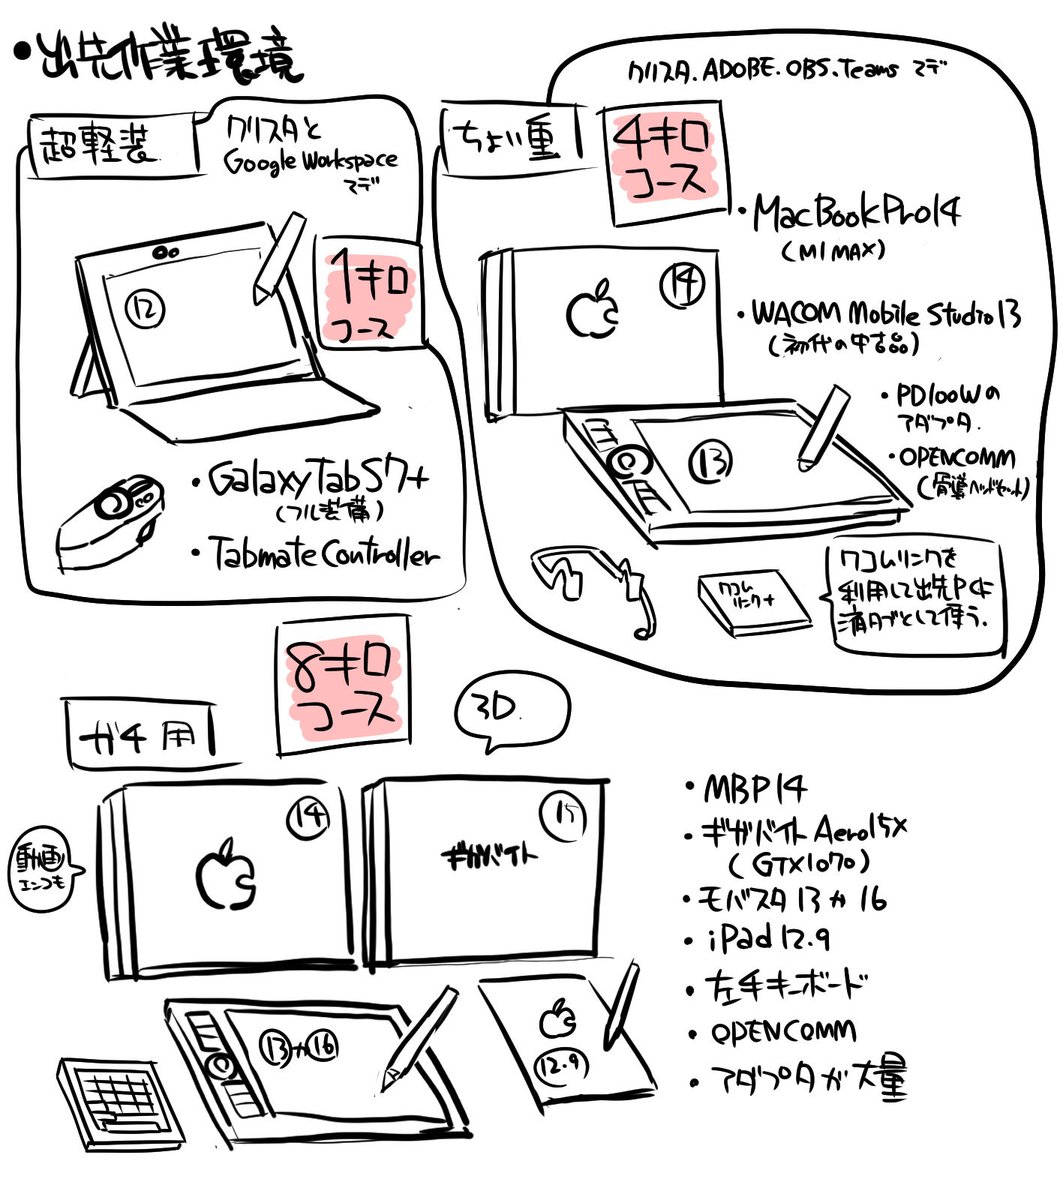 ・出先作業環境
超軽装
クリスタと
Google Workspace
マデ
1キロ
コース
12
・Galaxy Tab S7+
(フル装備)
・Tabmate Controller
ちょい重
4キロ
コース
クリスタ.ADOBE.OBS.Teams マデ
・MacBook Pro14
(M1 MAX)
14
・WACOM Mobile Studio 13
(初代の中古品)
・PD100Wの
アダプタ.
・OPENCOMM
(骨導ヘッドセット)
13
ワコム
リンク+
ワコムリンクを
利用して出先PCに
液タブとして使う.
ガチ用
8キロ
コース
3D.
動画
エンコも
14
15
ギガバイト
13か16
12.9
・MBP14
・ギガバイト Aero15X
(GTX1070)
・モバスタ 13か16
・iPad 12.9
・左手キーボード
・OPENCOMM
・アダプタが大量